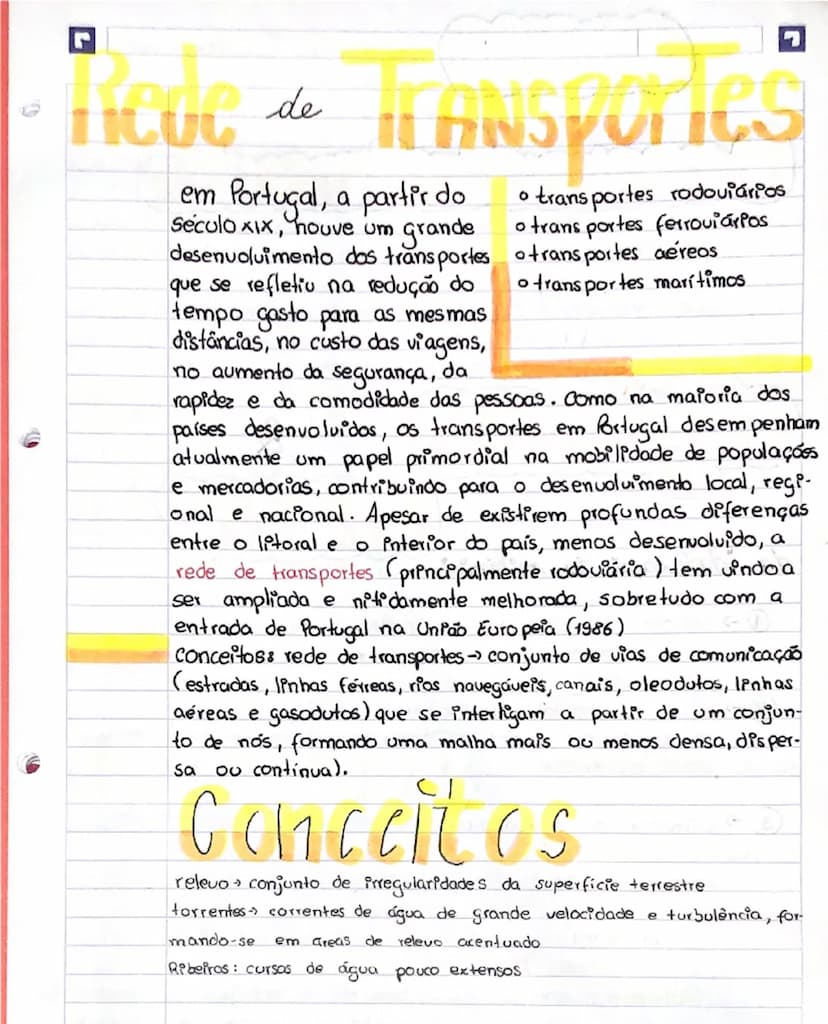 Rede de Transportes
em Portugal, a partir do
século XIX, houve um grande
desenvolvimento dos transportes
que se refletiu na redução do
tempo gasto para as mesmas
distâncias, no custo das viagens,
no aumento da segurança, da
o transportes rodoviários
o transportes ferroviários
o transportes aéreos
o transportes marítimos
rapidez e da comodidade das pessoas. Como na maioria dos
países desenvolvidos, os transportes em Portugal desempenham
atualmente um papel primordial na mobilidade de populações
e mercadorias, contribuindo para o desenvolvimento local, regi-
onal e nacional. Apesar de existirem profundas diferenças
entre o litoral e o interior do país, menos desenvolvido, a
rede de transportes (principalmente rodoviária) tem vindo a
ser ampliada e nitidamente melhorada, sobretudo com a
entrada de Portugal na União Europeia (1986)
Conceitos: rede de transportes → conjunto de vias de comunicação
(estradas, linhas férreas, rios navegáveis, canais, oleodutos, linhas
aéreas e gasodutos) que se interligam a partir de um conjun-
to de nós, formando uma malha mais ou menos densa, disper-
sa ou contínua).
Conceitos
relevo → conjunto de irregularidades da superfície terrestre
torrentes → correntes de água de grande velocidade e turbulência, for-
mando-se em áreas de relevo acentuado
Ribeiros: cursos de água pouco extensos